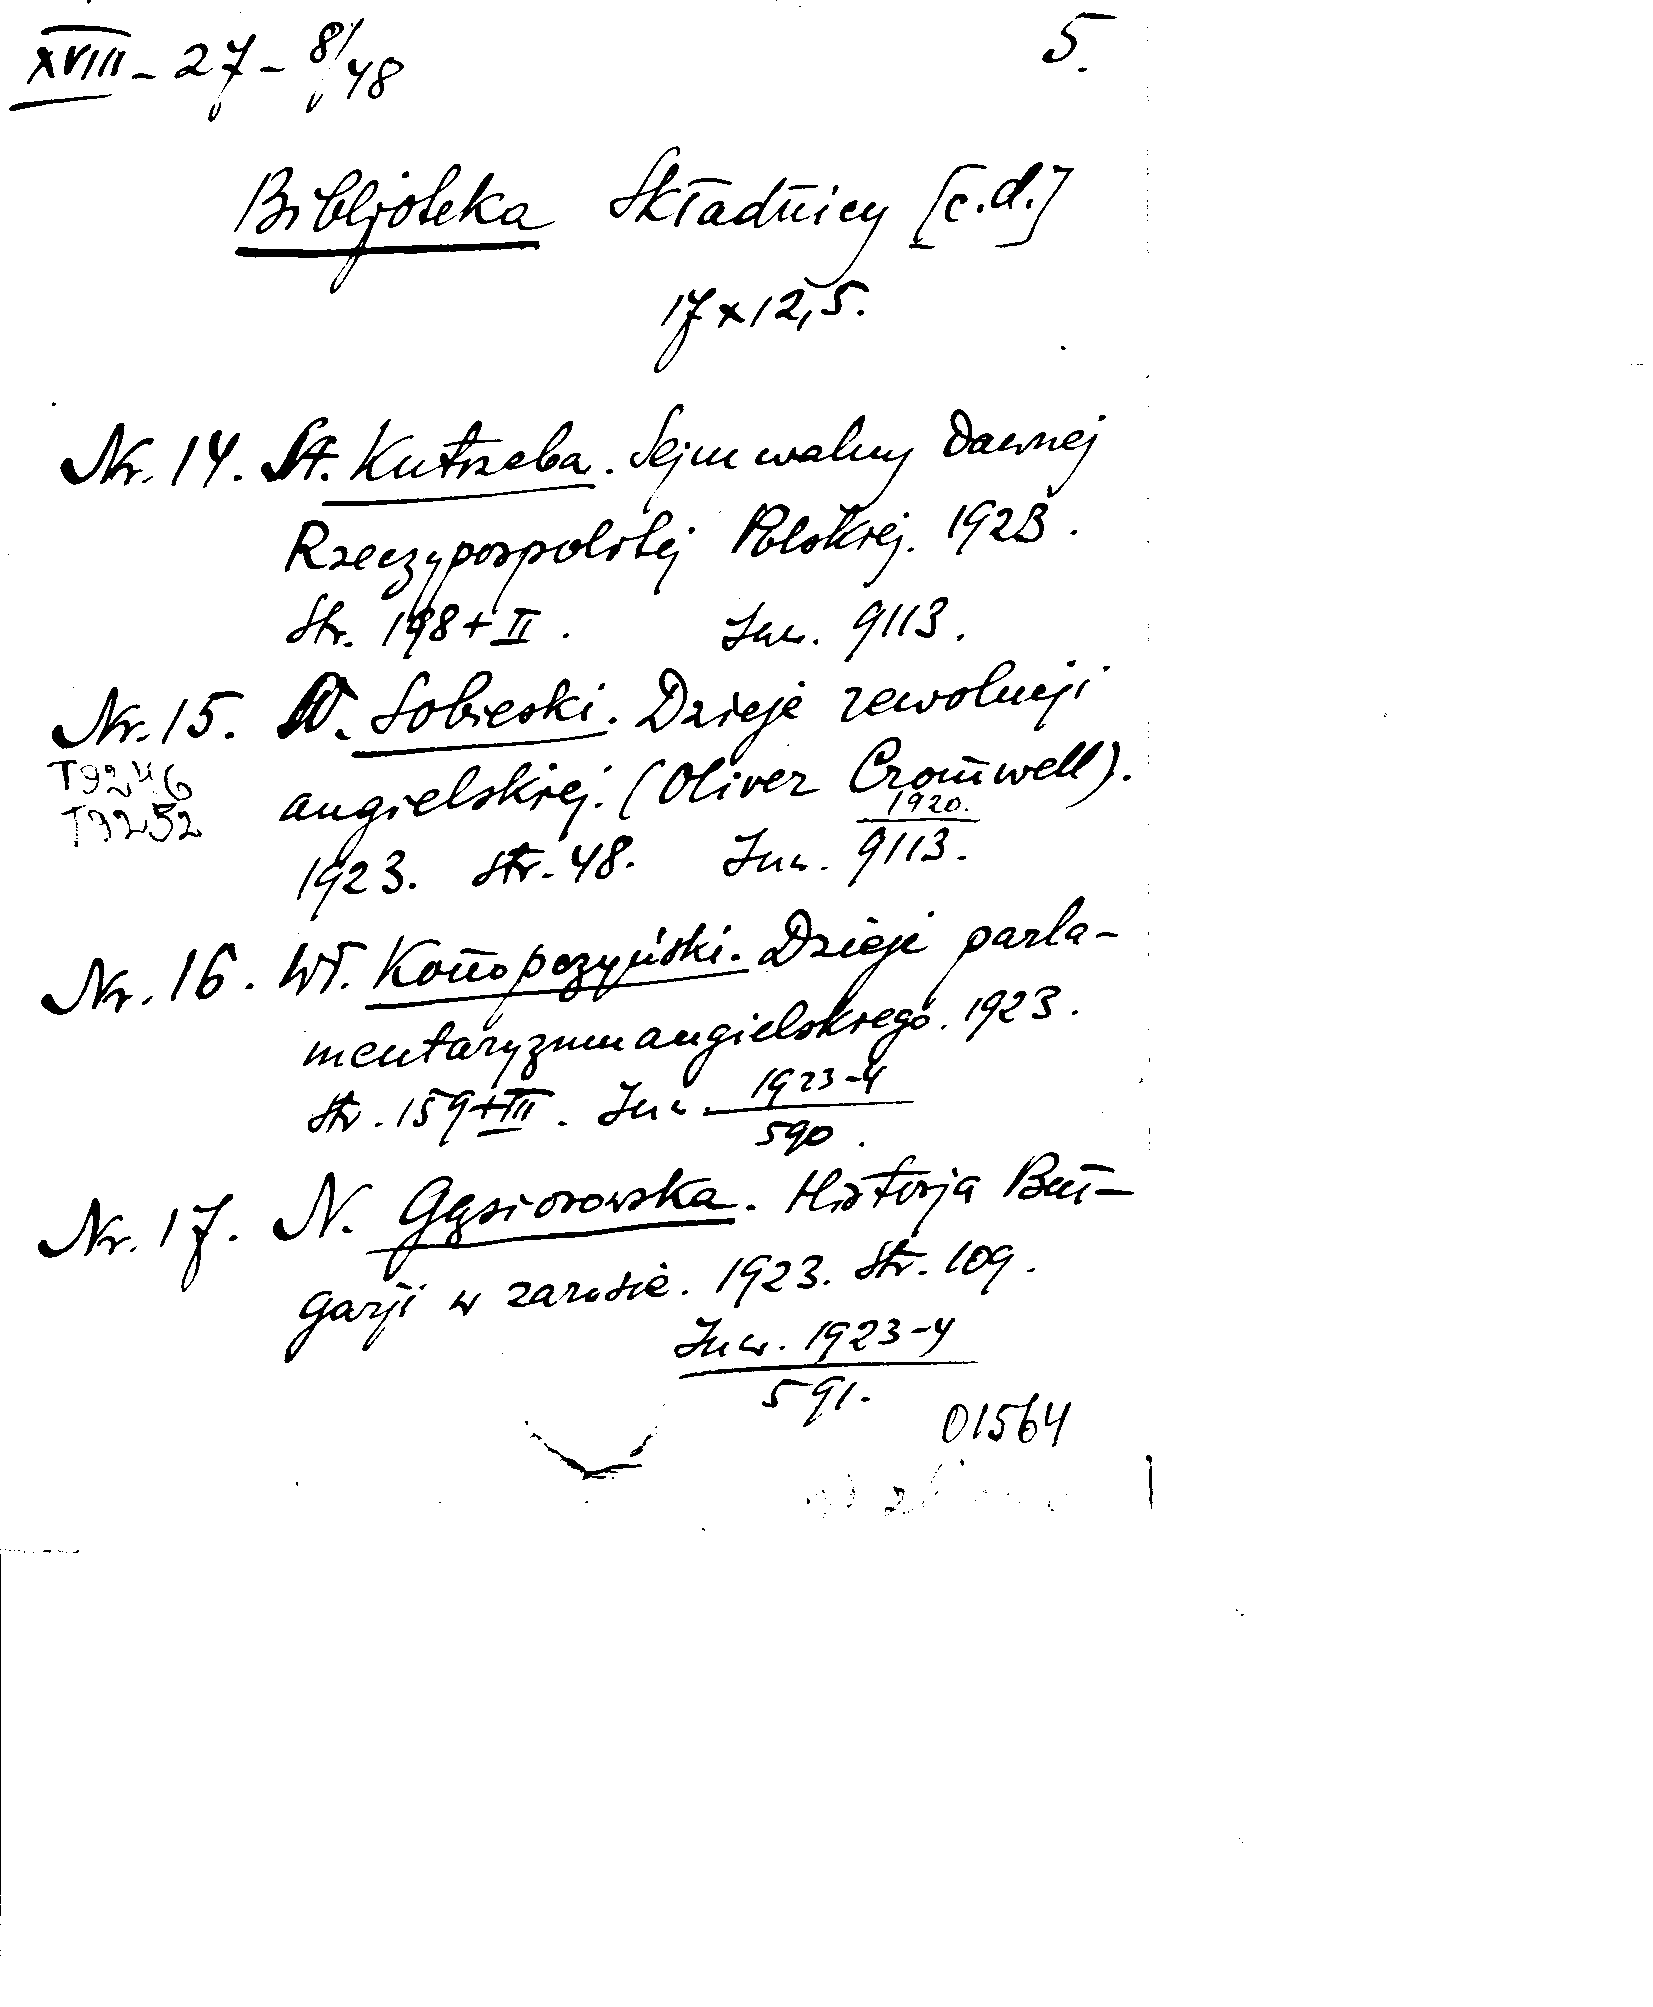 XVIII - 27 - 8/48
5.
Bibljoteka Składnicy [c.d.]
17 x 12,5.
Nr. 14. St. Kutrzeba. Sejm walny dawnej
Rzeczypospolitej Polskiej. 1923.
Str. 198 + II. Inw. 9113.
Nr. 15. W. Sobieski. Dzieje rewolucji
T9246
angielskiej. (Oliver Cromwell).
T9252
1920.
1923. Str. 48. Inw. 9113.
Nr. 16. Wł. Konopczyński. Dzieje parla-
mentaryzmu angielskiego. 1923.
Str. 159 + III. Inw. 1923-4
590.
Nr. 17. N. Gąsiorowska. Historja Buł-
garji w zarysie. 1923. Str. 109.
Inw. 1923-4
591.
01564